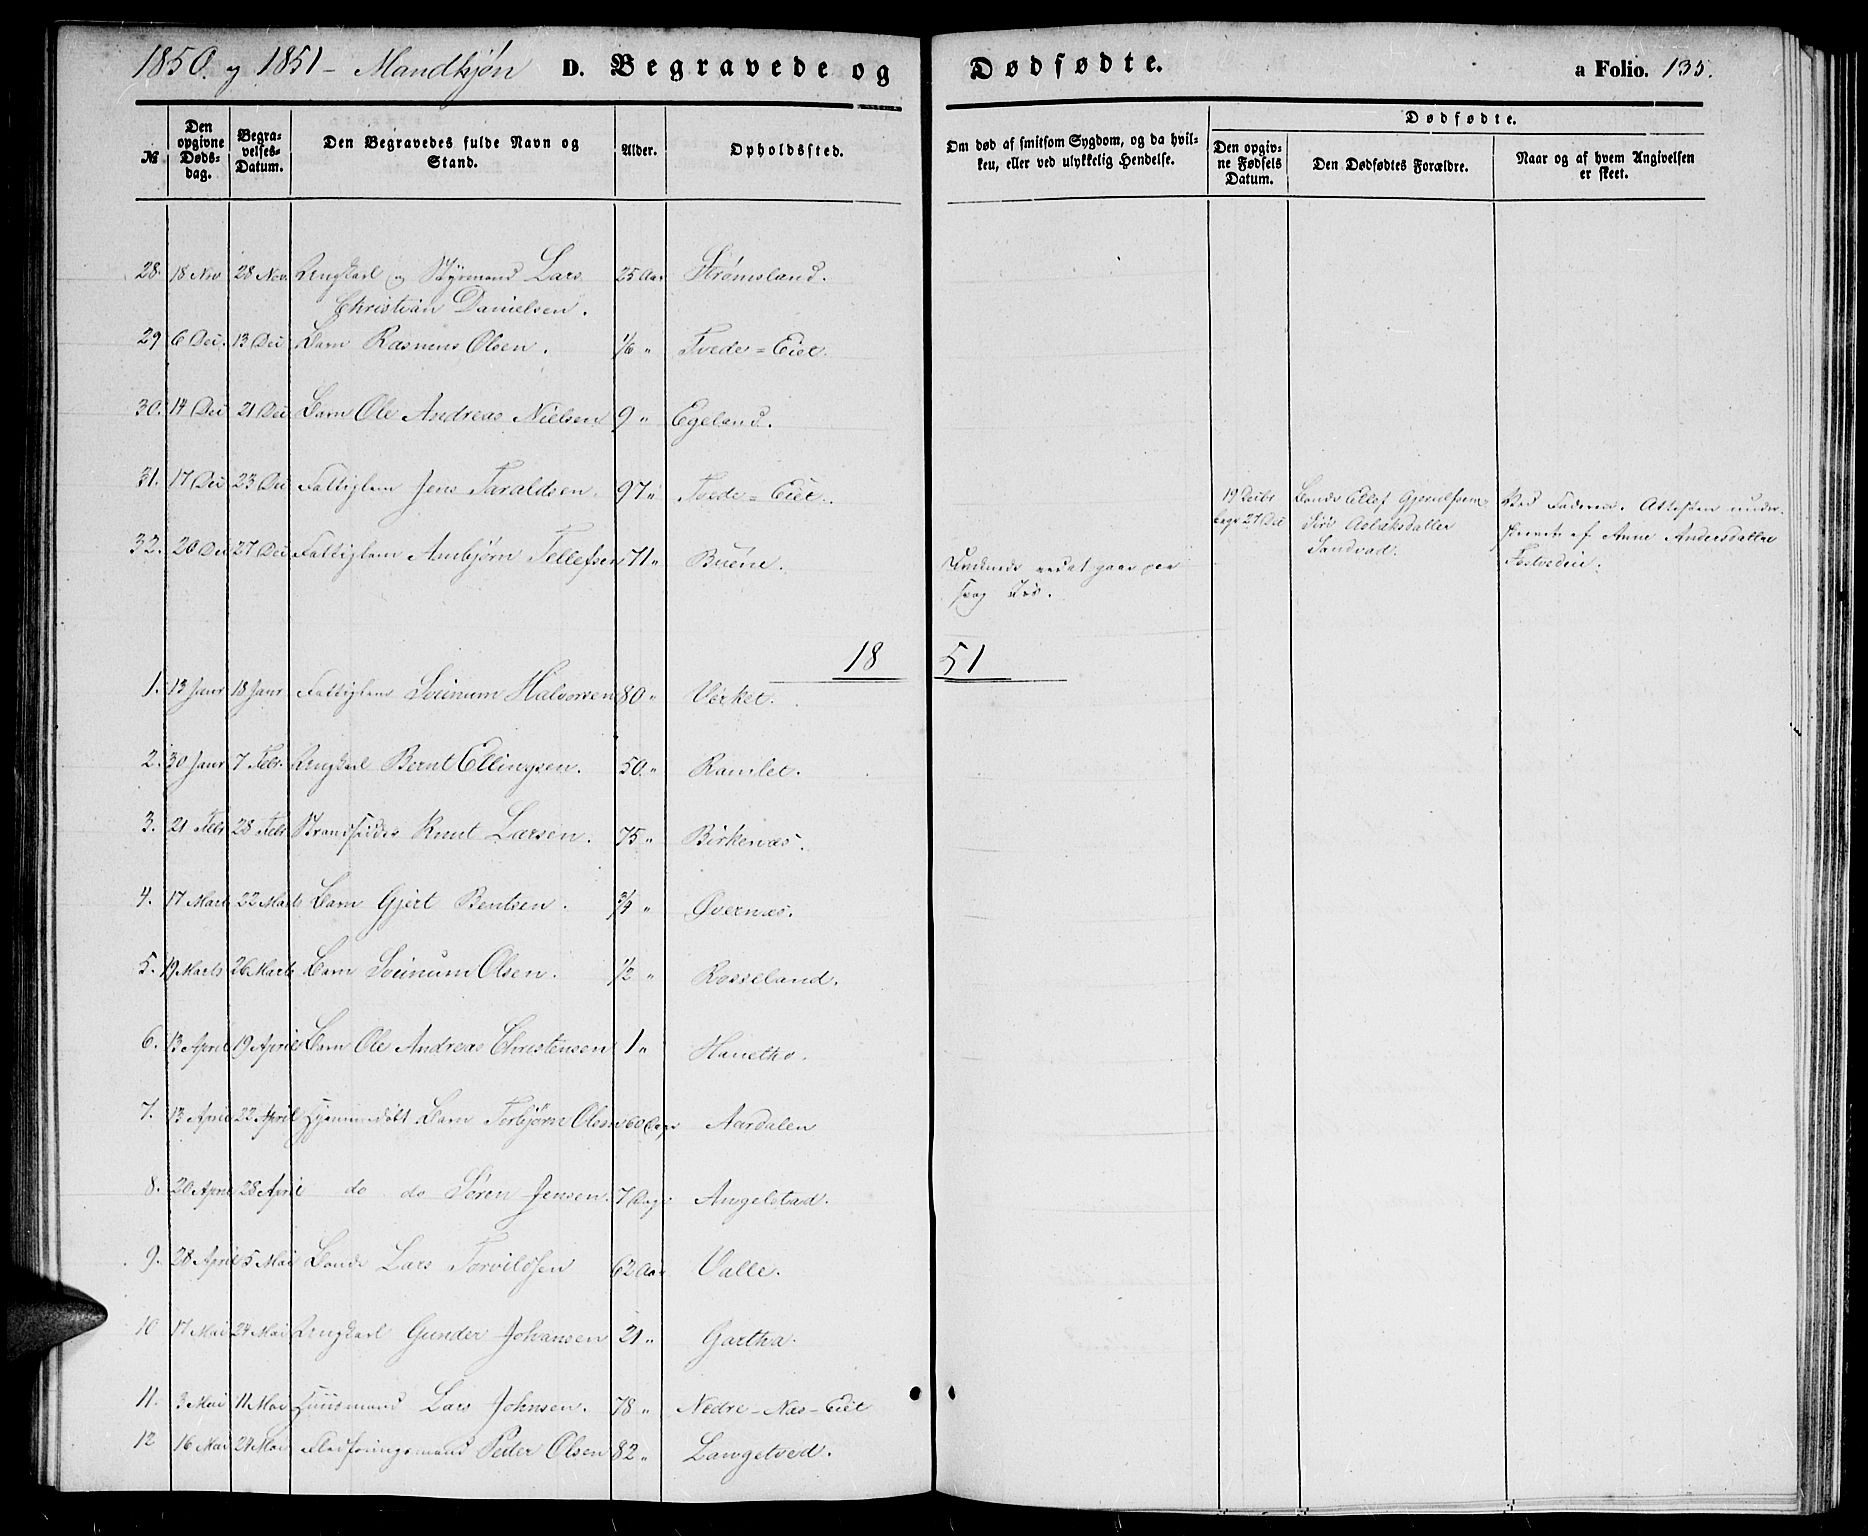 1850 og 1851 - Mandkjøn D. Begravede og Dødfødte. a Folio. 135.
№
Den opgivne Døds-dag.
Begra-velses-Datum.
Den Begravedes fulde Navn og Stand.
Alder.
Opholdssted.
Om død af smitsom Sygdom, og da hvil-ken, eller ved ulykkelig Hendelse.
Dødfødte.
Den opgiv-ne Fødsels Datum.
Den Dødfødtes Forældre.
Naar og af hvem Angivelsen er skeet.
28. 18 Nov 28 Nov. Ungkarl og Styrmand Lars 25 Aar Strømsland.
Christian Danielsen.
29 6 Dec. 13 Dec Barn Rasmus Olsen. 1/6 " Tvede-Eiet.
30. 14 Dec 21 Dec Barn Ole Andreas Nielsen 9 " Egeland.
31. 17 Dec 23 Dec Fattiglem Jens Taraldsen. 97 " Tvede-Eiet.
19 Decbr Bonde Ellef Gjerulfsen Ved Faderen. Attesten under-
begr 27 Dec Siri Aslaksdatter skreven af Anne Andersdatter
Sandvad.
32. 20 Dec 27 Dec Fattiglem Anbjørn Tellefsen 71 " Buene.
1851
1. 13 Janr 18 Janr Fattiglem Sveinum Halvorsen 80 " Verket.
2. 30 Janr 7 Febr. Ungkarl Bernt Ellingsen. 50 " Ramlet.
3. 21 Febr 28 Febr Strandsidder Knut Larsen. 75 " Birkenæs.
4. 17 Marts 22 Marts Barn Gjert Bentsen. 3/4 " Øvernæs.
5. 19 Marts 26 Marts Barn Sveinum Olsen. 1/2 " Rosseland.
6. 13 April 19 April Barn Ole Andreas Christensen 1 " Hanetho.
7. 13 April 22 April Hjemmedøbt Barn Torbjørn Olsen 60 Dage Aardalen
8. 20 April 28 April do do Søren Jensen. 7 Dage Angelstad.
9. 28 April 5 Mai Bonde Lars Torvildsen 62 Aar Valle.
10 17 Mai 24 Mai Ungkarl Gunder Johansen 21 " Gartha.
11. 3 Mai 11 Mai Huusmand Lars Johnsen. 78 " Nedre-Næs-Eiet
12 16 Mai 24 Mai Fledføringsmand Peder Olsen 82 " Langetved.